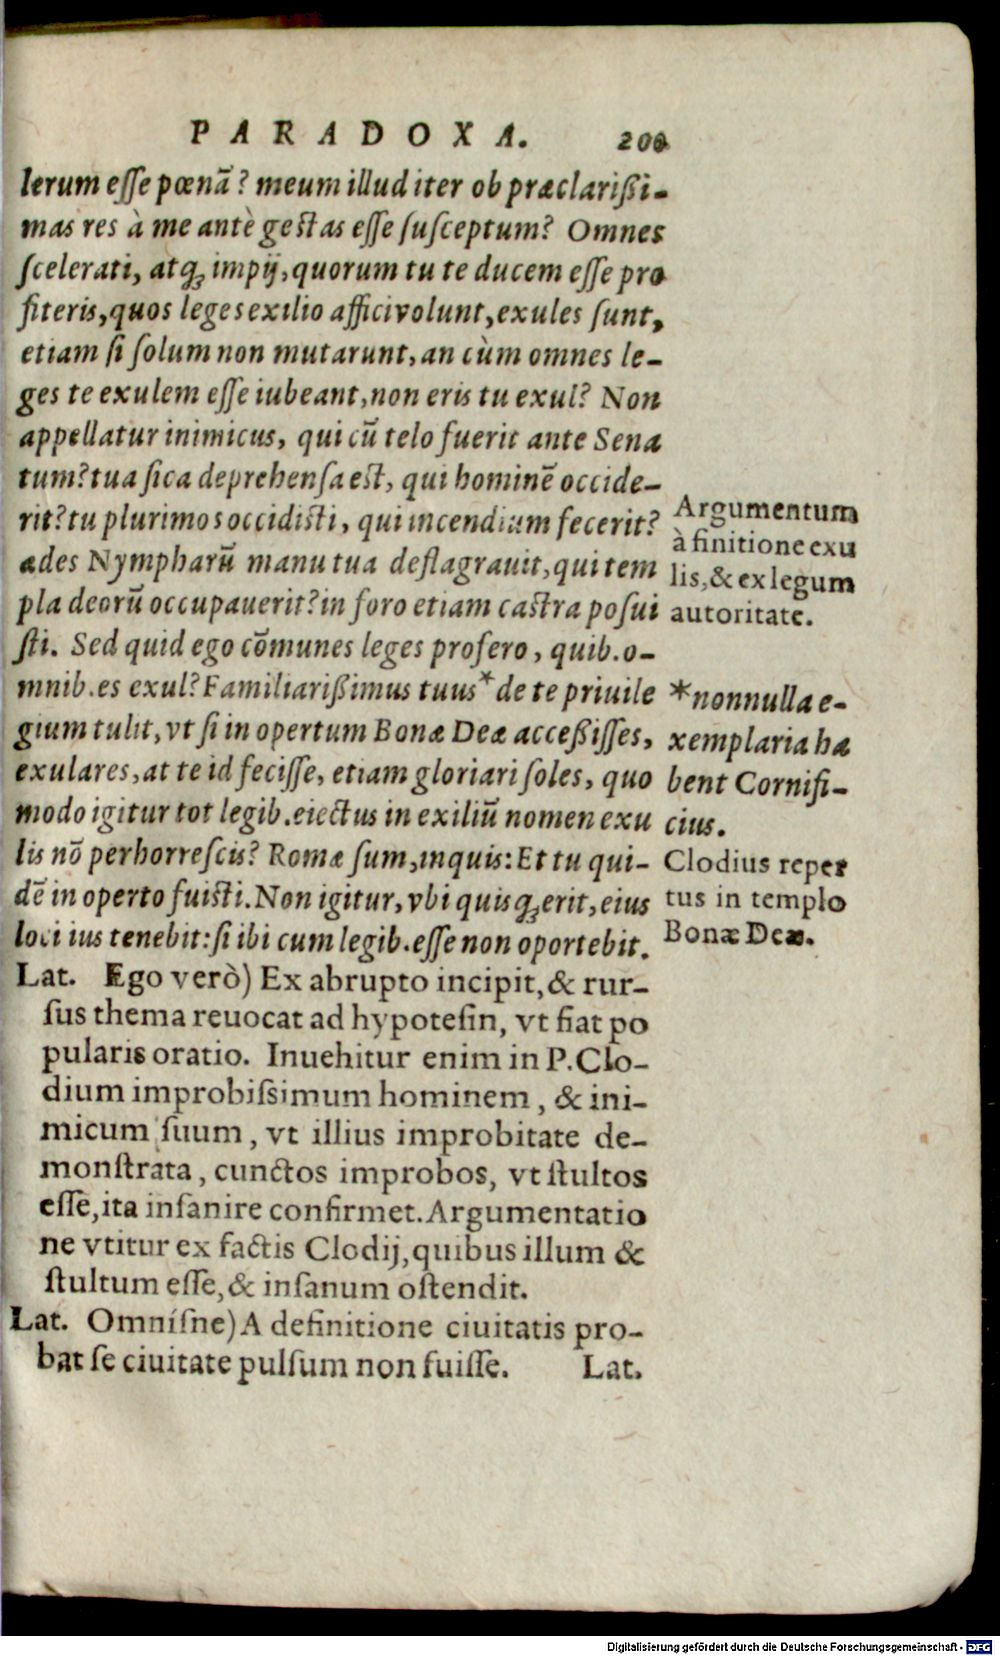 PARADOXA. 200
lerum eſſe pœnã? meum illud iter ob præclarißi-
mas res à me antè geſtas eſſe ſuſceptum? Omnes
ſcelerati, atq; impij, quorum tu te ducem eſſe pro
fiteris, quos leges exilio affici volunt, exules ſunt,
etiam ſi ſolum non mutarunt, an cùm omnes le-
ges te exulem eſſe iubeant, non eris tu exul? Non
appellatur inimicus, qui cũ telo fuerit ante Sena
tum? tua ſica deprehenſa eſt, qui hominẽ occide-
rit? tu plurimos occidiſti, qui incendium fecerit?
ædes Nympharũ manu tua deflagrauit, qui tem
pla deorũ occupauerit? in foro etiam caſtra poſui
ſti. Sed quid ego cõmunes leges profero, quib. o-
mnib. es exul? Familiarißimus tuus* de te priuile
gium tulit, vt ſi in opertum Bonæ Deæ acceßiſſes,
exulares, at te id feciſſe, etiam gloriari ſoles, quo
modo igitur tot legib. eiectus in exiliũ nomen exu
lis nõ perhorreſcis? Romæ ſum, inquis: Et tu qui-
dẽ in operto fuiſti. Non igitur, vbi quisq; erit, eius
loci ius tenebit: ſi ibi cum legib. eſſe non oportebit.
Argumentum
à finitione exu
lis, & ex legum
autoritate.
*nonnulla e-
xemplaria ha
bent Cornifi-
cius.
Clodius reper
tus in templo
Bonæ Deæ.
Lat. Ego verò) Ex abrupto incipit, & rur-
ſus thema reuocat ad hypoteſin, vt fiat po
pularis oratio. Inuehitur enim in P. Clo-
dium improbiſsimum hominem, & ini-
micum ſuum, vt illius improbitate de-
monſtrata, cunctos improbos, vt ſtultos
eſſe, ita inſanire confirmet. Argumentatio
ne vtitur ex factis Clodij, quibus illum &
ſtultum eſſe, & inſanum oſtendit.
Lat. Omníſne) A definitione ciuitatis pro-
bat ſe ciuitate pulſum non fuiſſe. Lat.
Digitalisierung gefördert durch die Deutsche Forschungsgemeinschaft - DFG